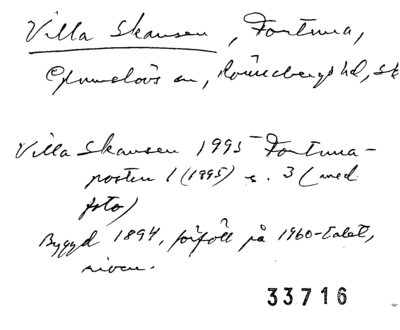 Villa Skansen, Fortuna,
Glumslövs sn, Rönnebergs hd, Sk
Villa Skansen 1995 - Fortuna-
posten 1 (1995) s. 3 (med
foto)
Byggd 1894, förföll på 1960-talet,
riven.
33716